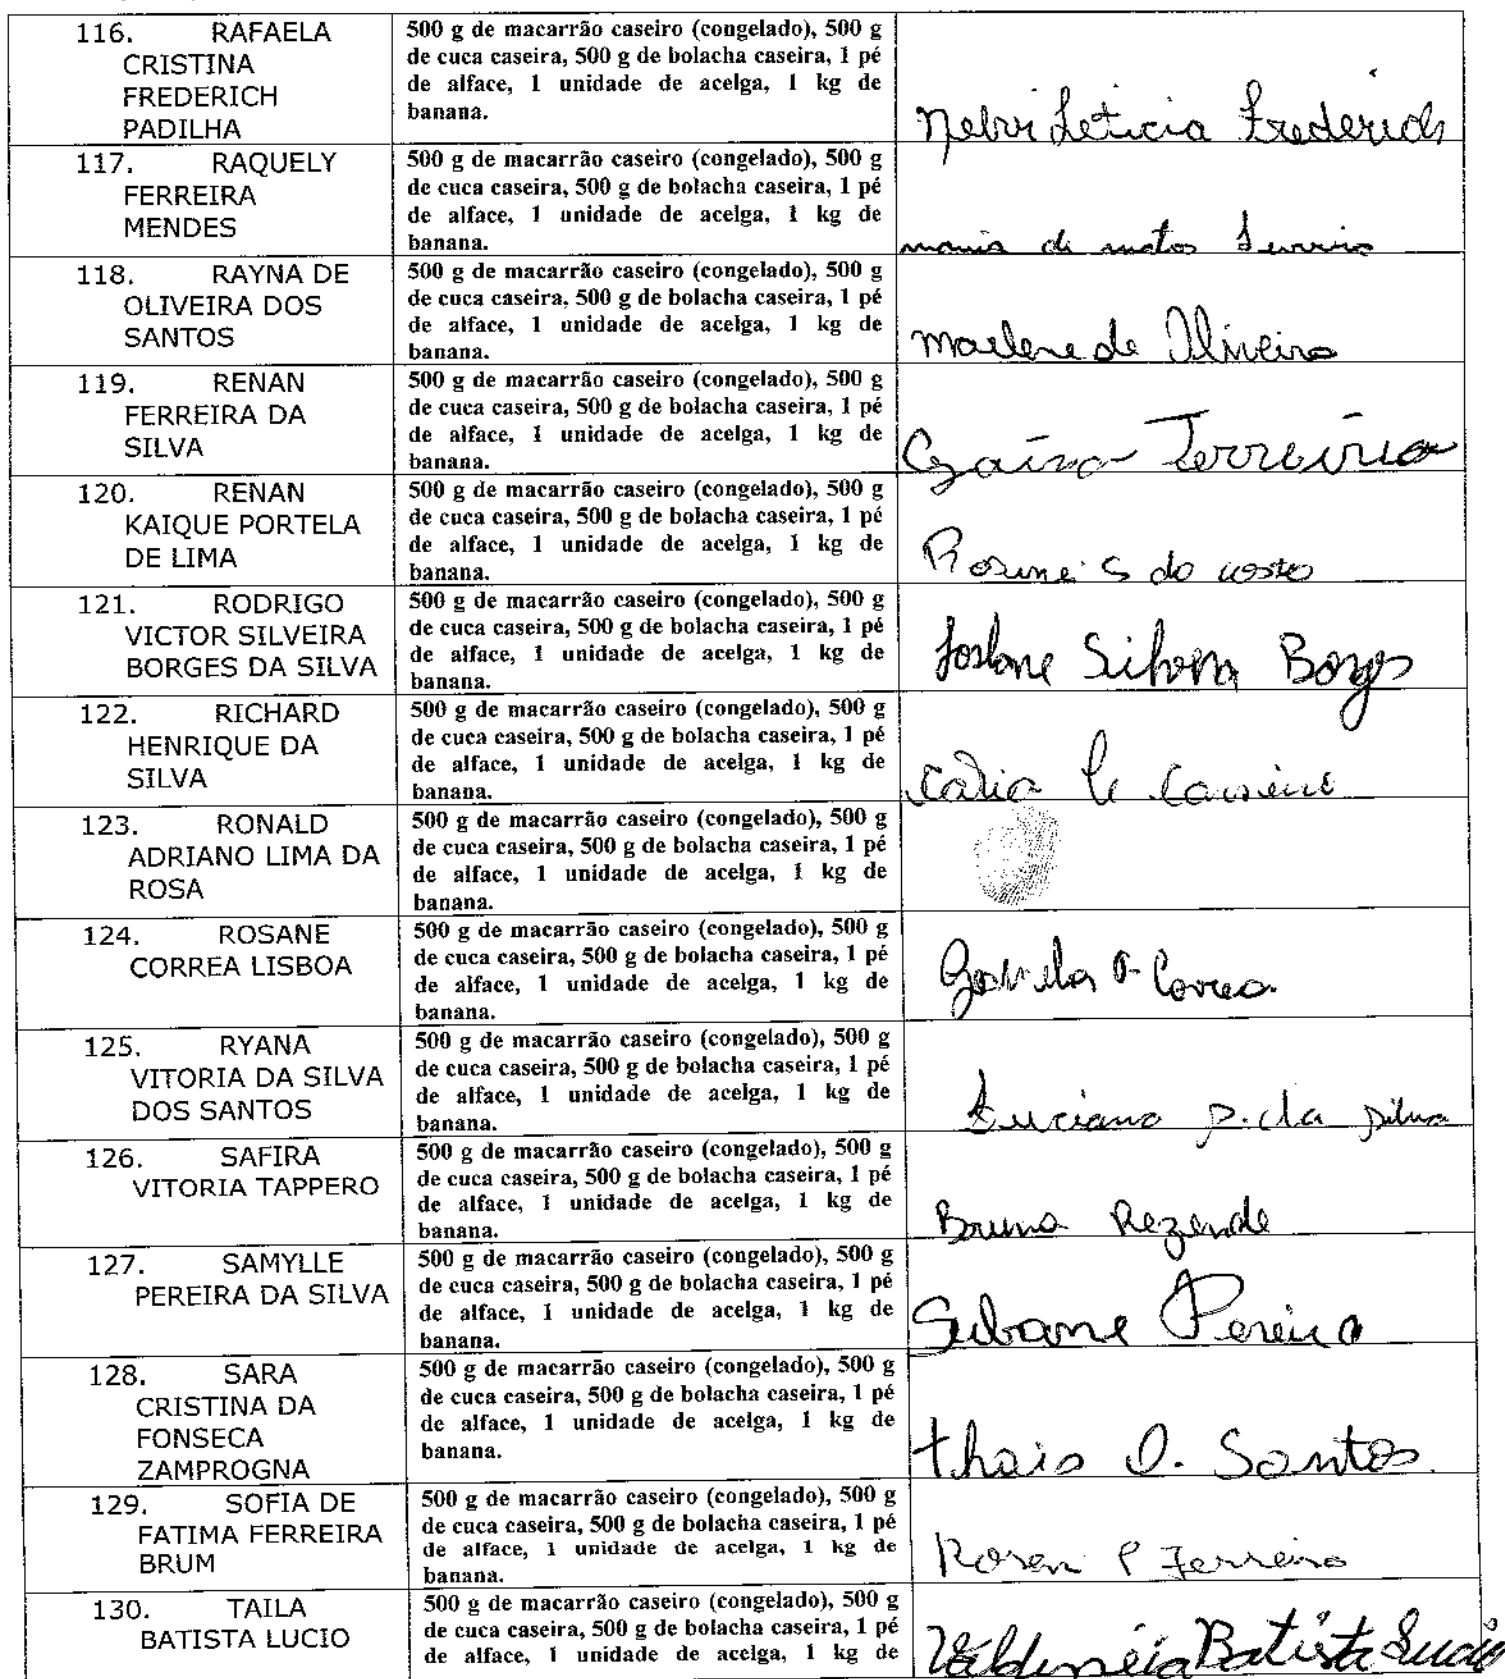 116. RAFAELA
CRISTINA
FREDERICH
PADILHA
500 g de macarrão caseiro (congelado), 500 g
de cuca caseira, 500 g de bolacha caseira, 1 pé
de alface, 1 unidade de acelga, 1 kg de
banana.
Leticia Frederich
117. RAQUELY
FERREIRA
MENDES
500 g de macarrão caseiro (congelado), 500 g
de cuca caseira, 500 g de bolacha caseira, 1 pé
de alface, 1 unidade de acelga, 1 kg de
banana.
de matos
118. RAYNA DE
OLIVEIRA DOS
SANTOS
500 g de macarrão caseiro (congelado), 500 g
de cuca caseira, 500 g de bolacha caseira, 1 pé
de alface, 1 unidade de acelga, 1 kg de
banana.
Marlene de Oliveira
119. RENAN
FERREIRA DA
SILVA
500 g de macarrão caseiro (congelado), 500 g
de cuca caseira, 500 g de bolacha caseira, 1 pé
de alface, 1 unidade de acelga, 1 kg de
banana.
120. RENAN
KAIQUE PORTELA
DE LIMA
500 g de macarrão caseiro (congelado), 500 g
de cuca caseira, 500 g de bolacha caseira, 1 pé
de alface, 1 unidade de acelga, 1 kg de
banana.
121. RODRIGO
VICTOR SILVEIRA
BORGES DA SILVA
500 g de macarrão caseiro (congelado), 500 g
de cuca caseira, 500 g de bolacha caseira, 1 pé
de alface, 1 unidade de acelga, 1 kg de
banana.
Borges
122. RICHARD
HENRIQUE DA
SILVA
500 g de macarrão caseiro (congelado), 500 g
de cuca caseira, 500 g de bolacha caseira, 1 pé
de alface, 1 unidade de acelga, 1 kg de
banana.
123. RONALD
ADRIANO LIMA DA
ROSA
500 g de macarrão caseiro (congelado), 500 g
de cuca caseira, 500 g de bolacha caseira, 1 pé
de alface, 1 unidade de acelga, 1 kg de
banana.
124. ROSANE
CORREA LISBOA
500 g de macarrão caseiro (congelado), 500 g
de cuca caseira, 500 g de bolacha caseira, 1 pé
de alface, 1 unidade de acelga, 1 kg de
banana.
Correa
125. RYANA
VITORIA DA SILVA
DOS SANTOS
500 g de macarrão caseiro (congelado), 500 g
de cuca caseira, 500 g de bolacha caseira, 1 pé
de alface, 1 unidade de acelga, 1 kg de
banana.
Luciano P. da Silva
126. SAFIRA
VITORIA TAPPERO
500 g de macarrão caseiro (congelado), 500 g
de cuca caseira, 500 g de bolacha caseira, 1 pé
de alface, 1 unidade de acelga, 1 kg de
banana.
Bruna Rezende
127. SAMYLLE
PEREIRA DA SILVA
500 g de macarrão caseiro (congelado), 500 g
de cuca caseira, 500 g de bolacha caseira, 1 pé
de alface, 1 unidade de acelga, 1 kg de
banana.
Pereira
128. SARA
CRISTINA DA
FONSECA
ZAMPROGNA
500 g de macarrão caseiro (congelado), 500 g
de cuca caseira, 500 g de bolacha caseira, 1 pé
de alface, 1 unidade de acelga, 1 kg de
banana.
Thais O. Santos
129. SOFIA DE
FATIMA FERREIRA
BRUM
500 g de macarrão caseiro (congelado), 500 g
de cuca caseira, 500 g de bolacha caseira, 1 pé
de alface, 1 unidade de acelga, 1 kg de
banana.
P Ferreira
130. TAILA
BATISTA LUCIO
500 g de macarrão caseiro (congelado), 500 g
de cuca caseira, 500 g de bolacha caseira, 1 pé
de alface, 1 unidade de acelga, 1 kg de
Valdineia Batista Lucio